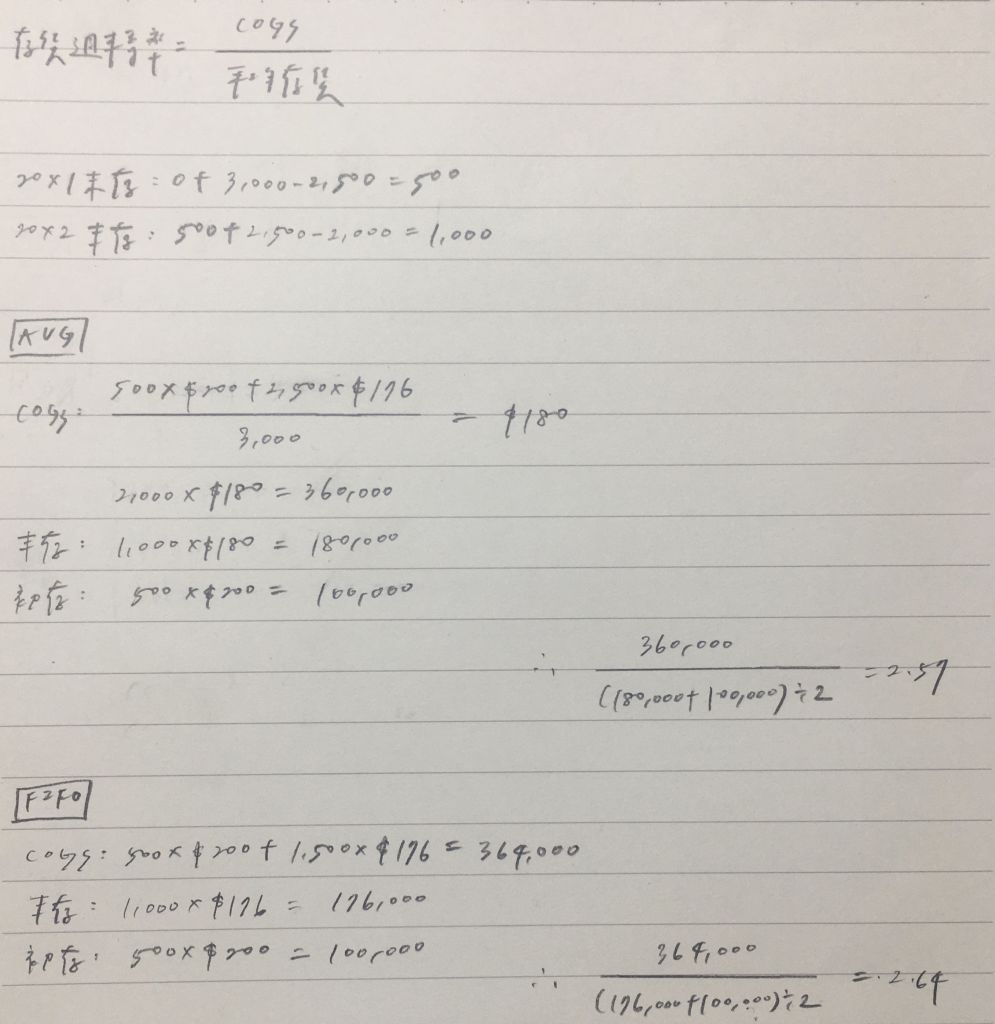 存貨週轉率 = COGS / 平均存貨
20×1 末存 : 0 + 3,000 - 2,500 = 500
20×2 末存 : 500 + 2,500 - 2,000 = 1,000
AVG
COGS : (500 × $200 + 2,500 × $176) / 3,000 = $180
2,000 × $180 = 360,000
末存 : 1,000 × $180 = 180,000
初存 : 500 × $200 = 100,000
∴ 360,000 / (180,000 + 100,000) ÷ 2 = 2.57
FIFO
COGS : 500 × $200 + 1,500 × $176 = 364,000
末存 : 1,000 × $176 = 176,000
初存 : 500 × $200 = 100,000
∴ 364,000 / (176,000 + 100,000) ÷ 2 = 2.64